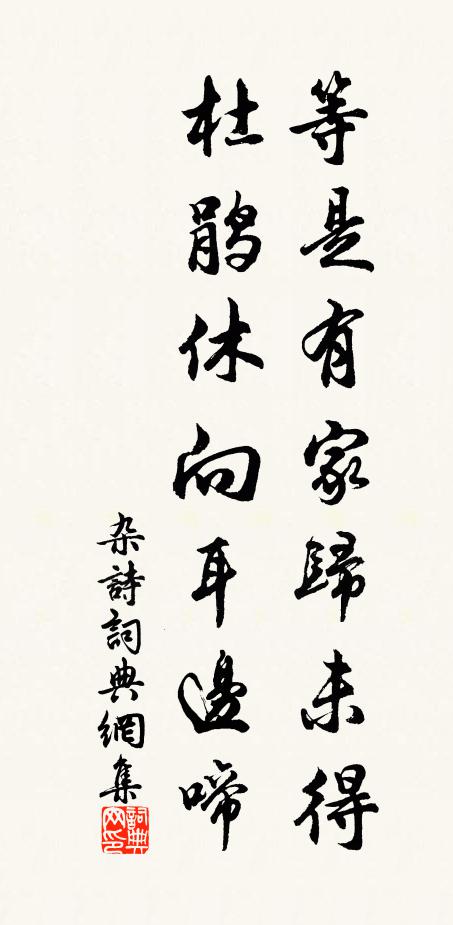 等是有家歸未得
杜鹃休向耳邊啼
杂詩詞典網集
詞典网印